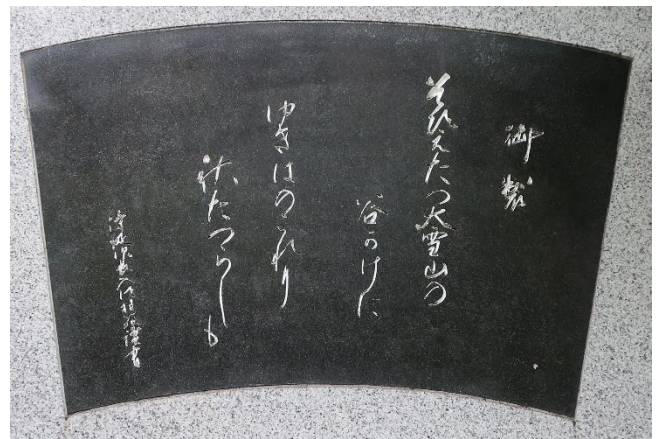 御製
そひえたつ大雪山の
谷かけに
ゆきはのこれり
秋たつらしも
謹書